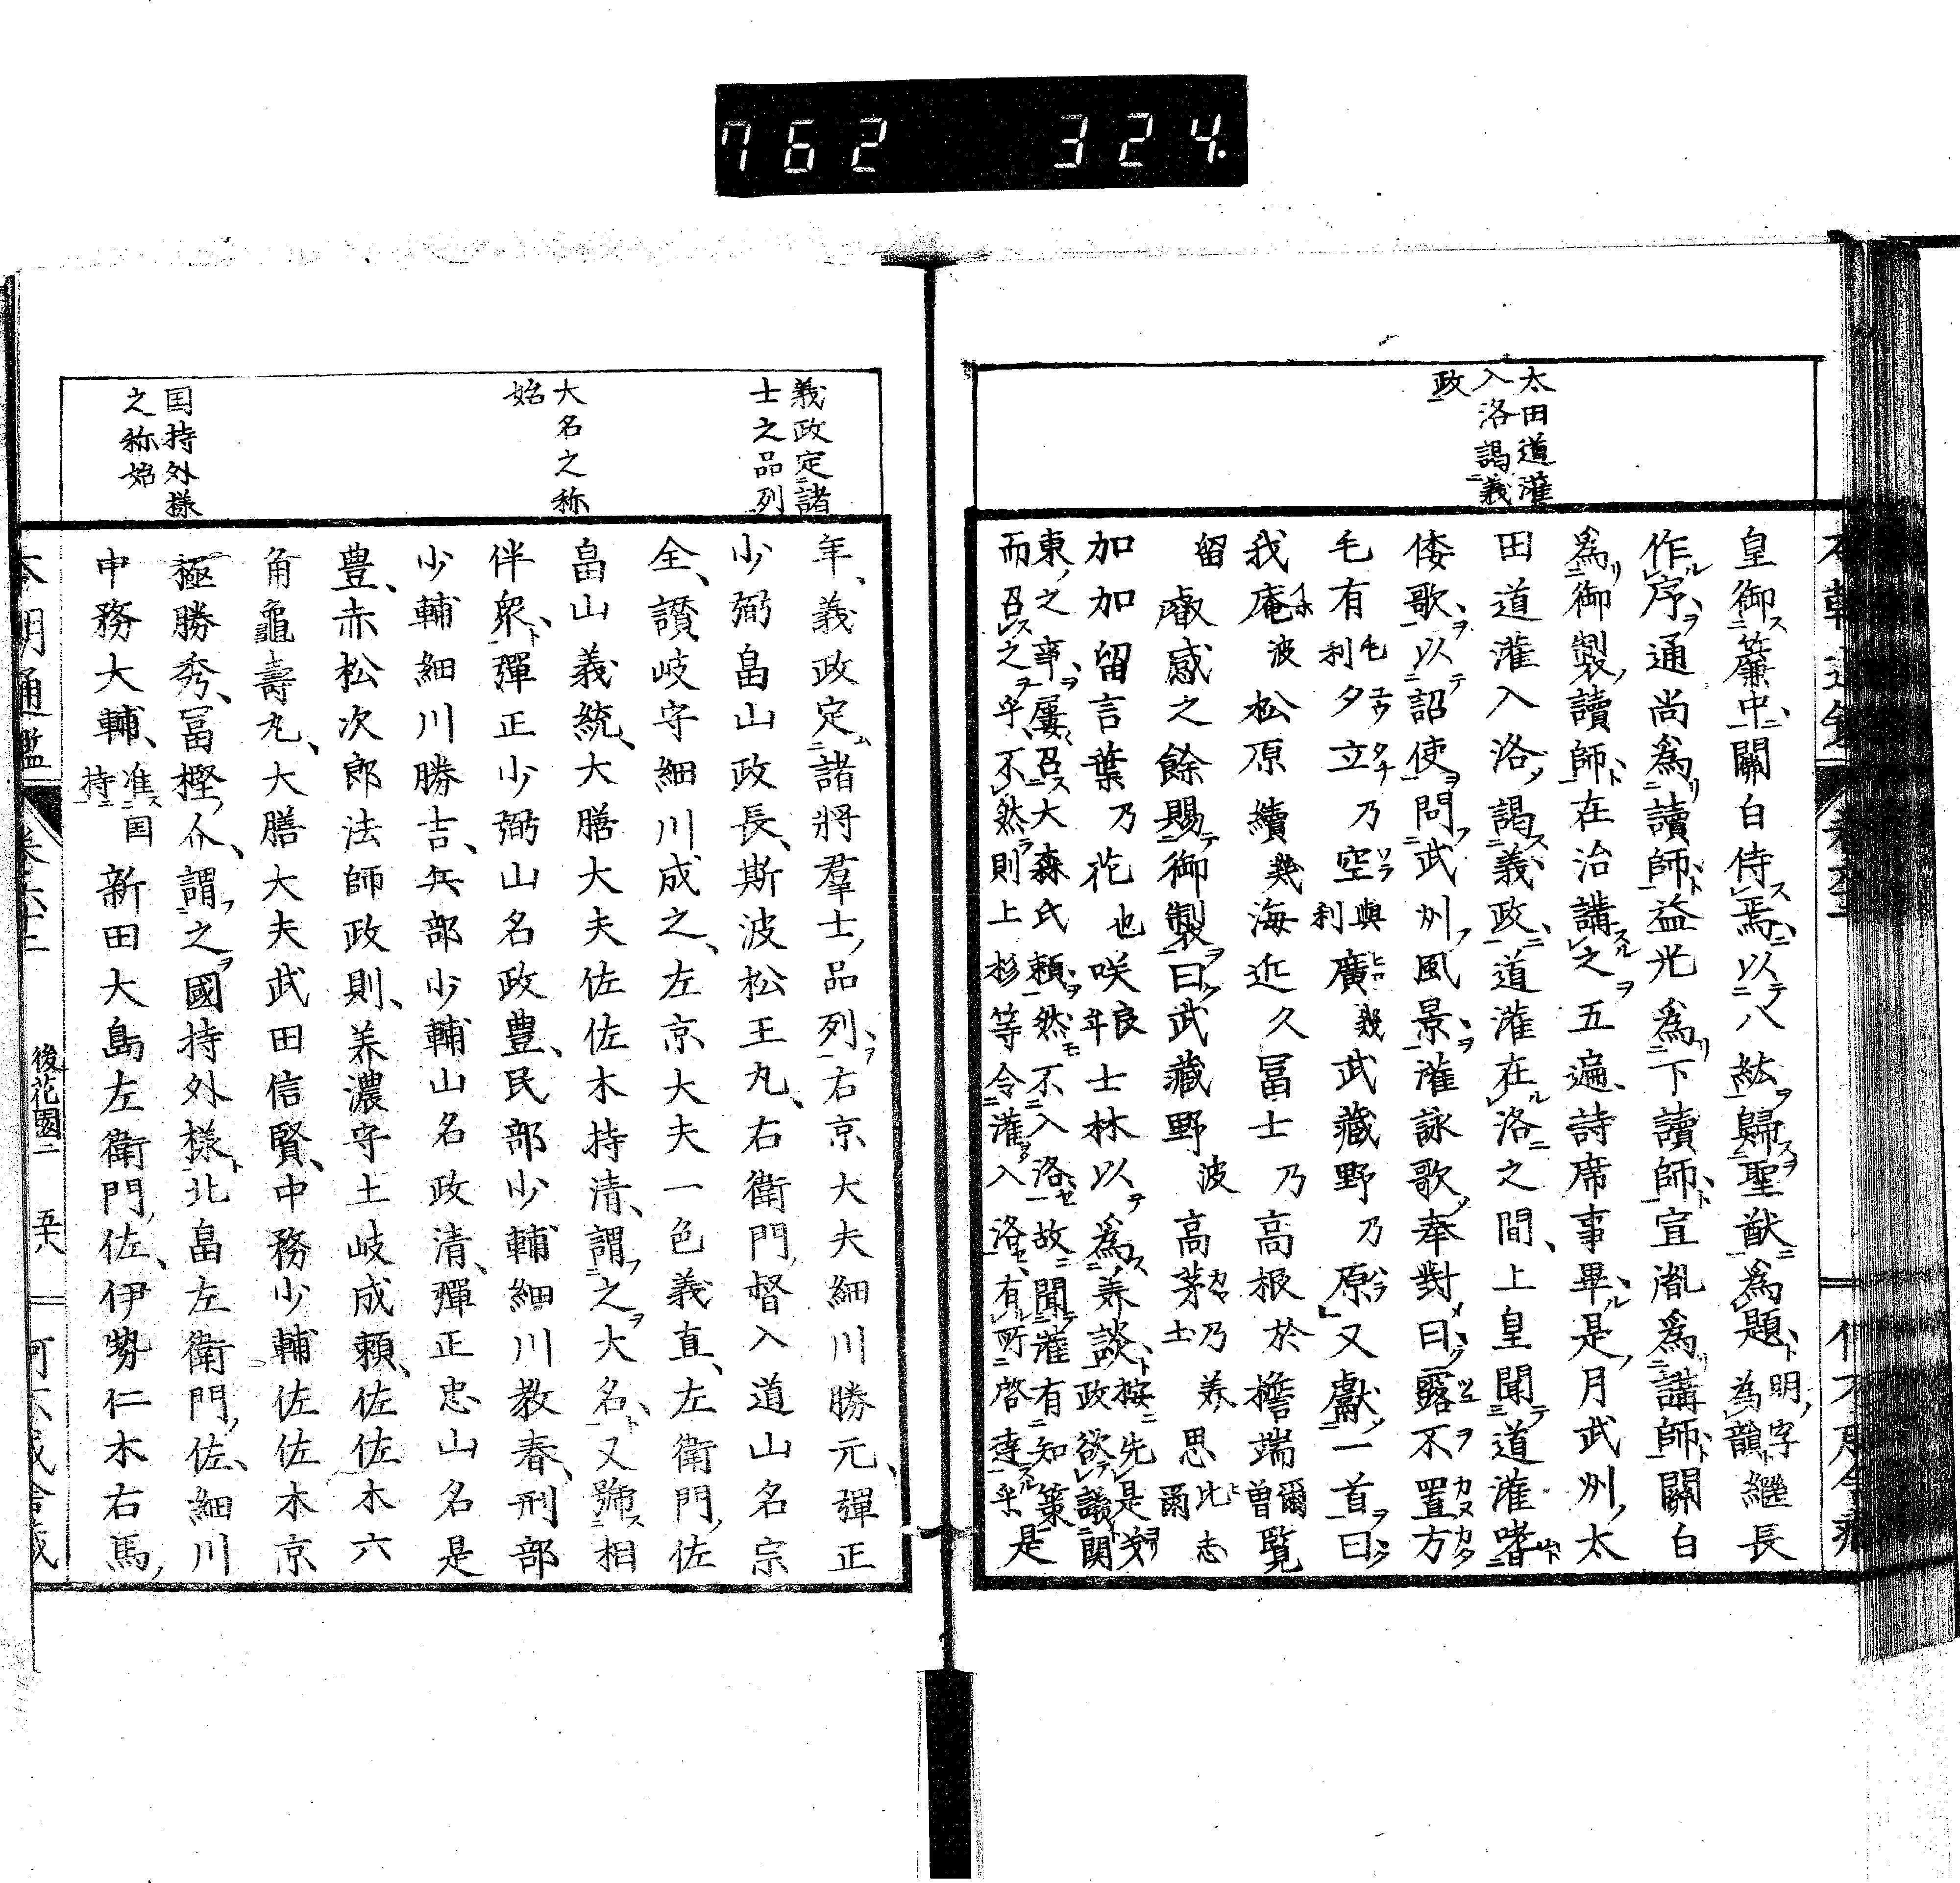 762 324.
太田道灌
入洛謁義
政
皇御簾中關白侍焉以八紘歸聖猷為題明字為韻繼長
作序通尚為讀師益光為下讀師宣胤為講師關白
為御製讀師在治講之五遍詩席事畢是月武州太
田道灌入洛謁義政道灌在洛之間上皇聞道灌嗜
倭歌以詔使問武州風景灌詠歌奉對曰露不置方
毛有毛利夕立乃空與利廣幾武藏野乃原又獻一首曰
我庵波松原續幾海近久冨士乃高根於檐端爾曽覧
留叡感之餘賜御製曰武藏野波高茅乃士養思比志爾
加加留言葉乃花也咲良年士林以為美談按先是義政欲議関
東之事屢召大森氏頼然不入洛故聞灌有知策
而召之乎不然則上杉等令灌入洛有所啓達乎是
義政定諸
士之品列
大名之称
始
国持外様
之称始
年義政定諸將羣士品列右京大夫細川勝元彈正
少弼畠山政長斯波松王丸右衛門督入道山名宗
全讃岐守細川成之左京大夫一色義直左衛門佐
畠山義統大膳大夫佐佐木持清謂之大名又號相
伴衆彈正少弼山名政豊民部少輔細川教春刑部
少輔細川勝吉兵部少輔山名政清彈正忠山名是
豊赤松次郎法師政則美濃守土岐成頼佐佐木六
角龜壽丸大膳大夫武田信賢中務少輔佐佐木京
極勝秀冨樫介謂之國持外様北畠左衛門佐細川
中務大輔准国持新田大島左衛門佐伊勢仁木右馬
本朝通鑑
卷六十二
後花園二
五十八